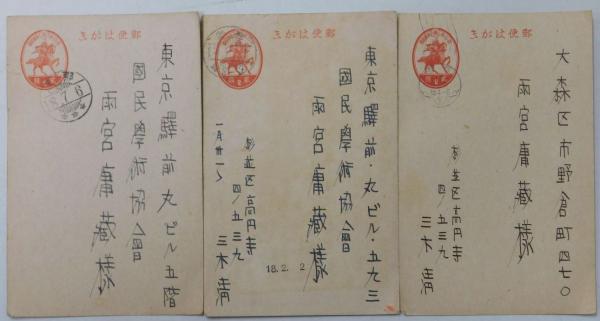 きがは便郵
18.7.6
東京驛前丸ビル五階
國民學術協會
雨宮庸藏様
きがは便郵
東京驛前・丸ビル・五九三
國民學術協會
雨宮庸藏様
一月卅一日
杉並区高円寺
四ノ五三九
三木清
18.2.2
きがは便郵
大森区市野倉町四七〇
雨宮庸藏様
杉並区高円寺
四ノ五三九
三木清